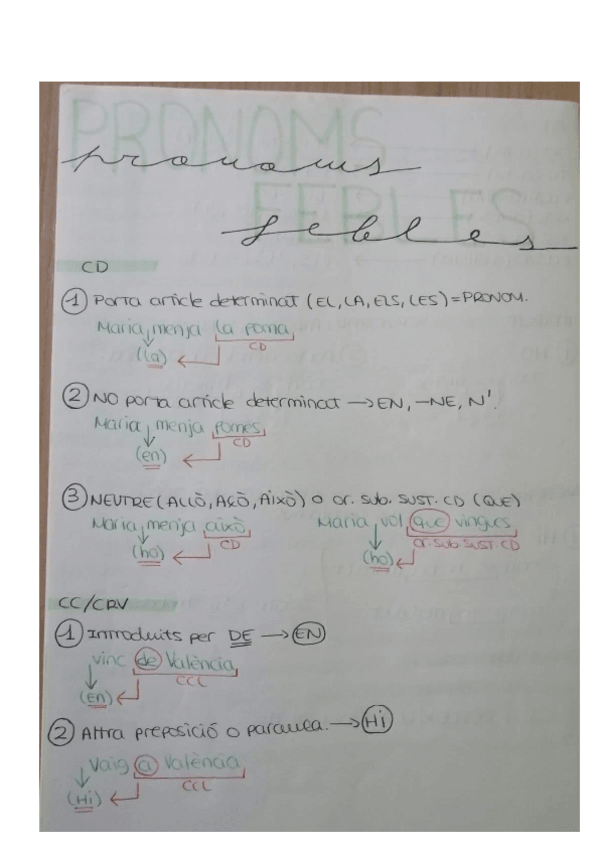 PRONOMS
pronoms
FEBLES
febles
CD
1 Porta article determinat (EL, LA, ELS, LES) = PRONOM.
Maria menja la poma
(la) CD
2 NO porta article determinat → EN, -NE, N'.
Maria menja pomes
(en) CD
3 NEUTRE (ALLÒ, AÇÒ, Això) o or. sub. SUST. CD (QUE)
Maria menja això Maria vol que vingues
(ho) CD (ho) or. sub. SUST. CD
CC/CRV
1 Introduïts per DE → EN
vinc de València
(En) CCL
2 Altra preposició o paraula. → Hi
Vaig a València
(Hi) CCL